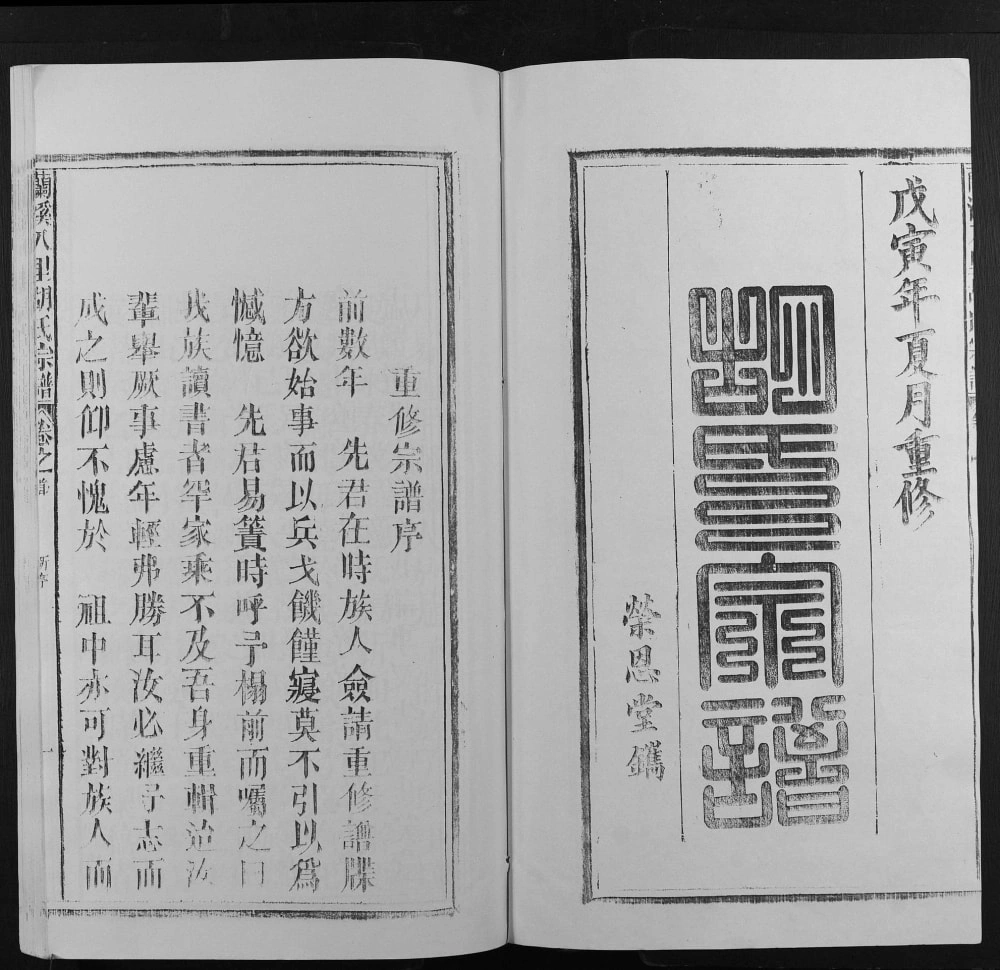 戊寅年夏月重修
胡氏宗譜
榮恩堂鐫
重修宗譜序
前數年　先君在時族人僉請重修譜牒
方欲始事而以兵戈饑饉寢莫不引以為
憾憶　先君易簀時呼予榻前而囑之曰
我族讀書者罕家乘不及吾身重輯迨汝
輩舉厥事慮年輕弗勝耳汝必繼予志而
成之則仰不愧於　祖中亦可對族人而
蘭溪八里胡氏宗譜　卷之首　新序　一